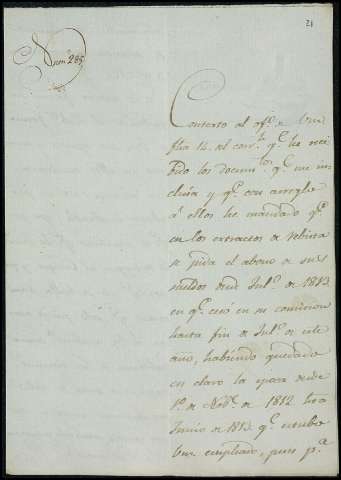 21
Num.º 285
Contexto al ofº. de Vm
fha 14. al corr.te q.e he reci
bido los docum.tos q.e me in
cluia y q.e con arreglo
a ellos he mandado q.e
en los extractos de rebista
se pida el abono de sus
sueldos desde Jul.º de 1813.
en q.e cesó en su comision
hasta fin de Jul.º de este
año, habiendo quedado
en claro la epoca desde
1.º de Nov.e de 1812 ha
Junio de 1813. q.e estubo
Vm empleado, pues p.a